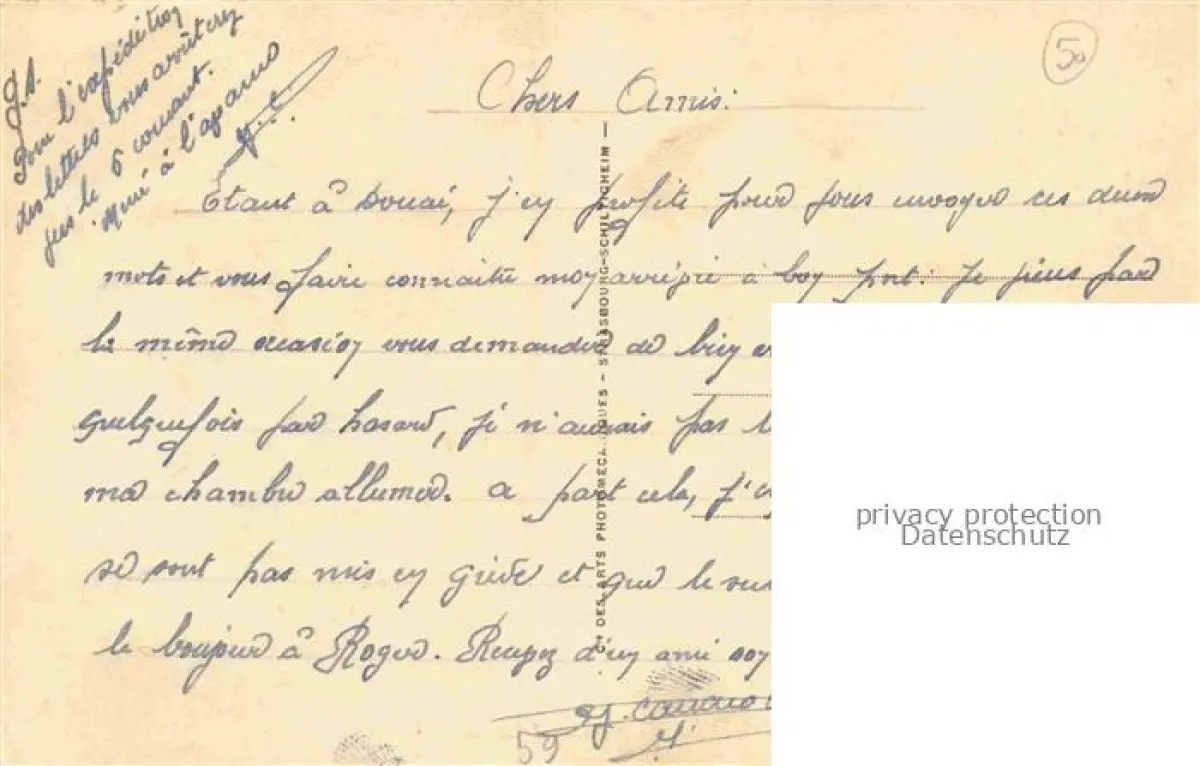 P.S.
Pour l'expédition
des lettres vous arrêterez
le 6 courant.
à l'
50
Chers Amis:
Etant à Douai, j'en profite pour vous envoyer ces deux
mots et vous faire connaitre mon arrivée à bon port. Je viens par
la même occasion vous demander de bien
quelquefois par hasard, je n'aurais pas
ma chambre allumer. a part cela, j'
se sont pas mis en grève et que le
le bonjour à Roger. Recevez d'un ami
59
Cie DES ARTS PHOTOMÉCANIQUES - STRASBOURG-SCHILTIGHEIM -
privacy protection
Datenschutz